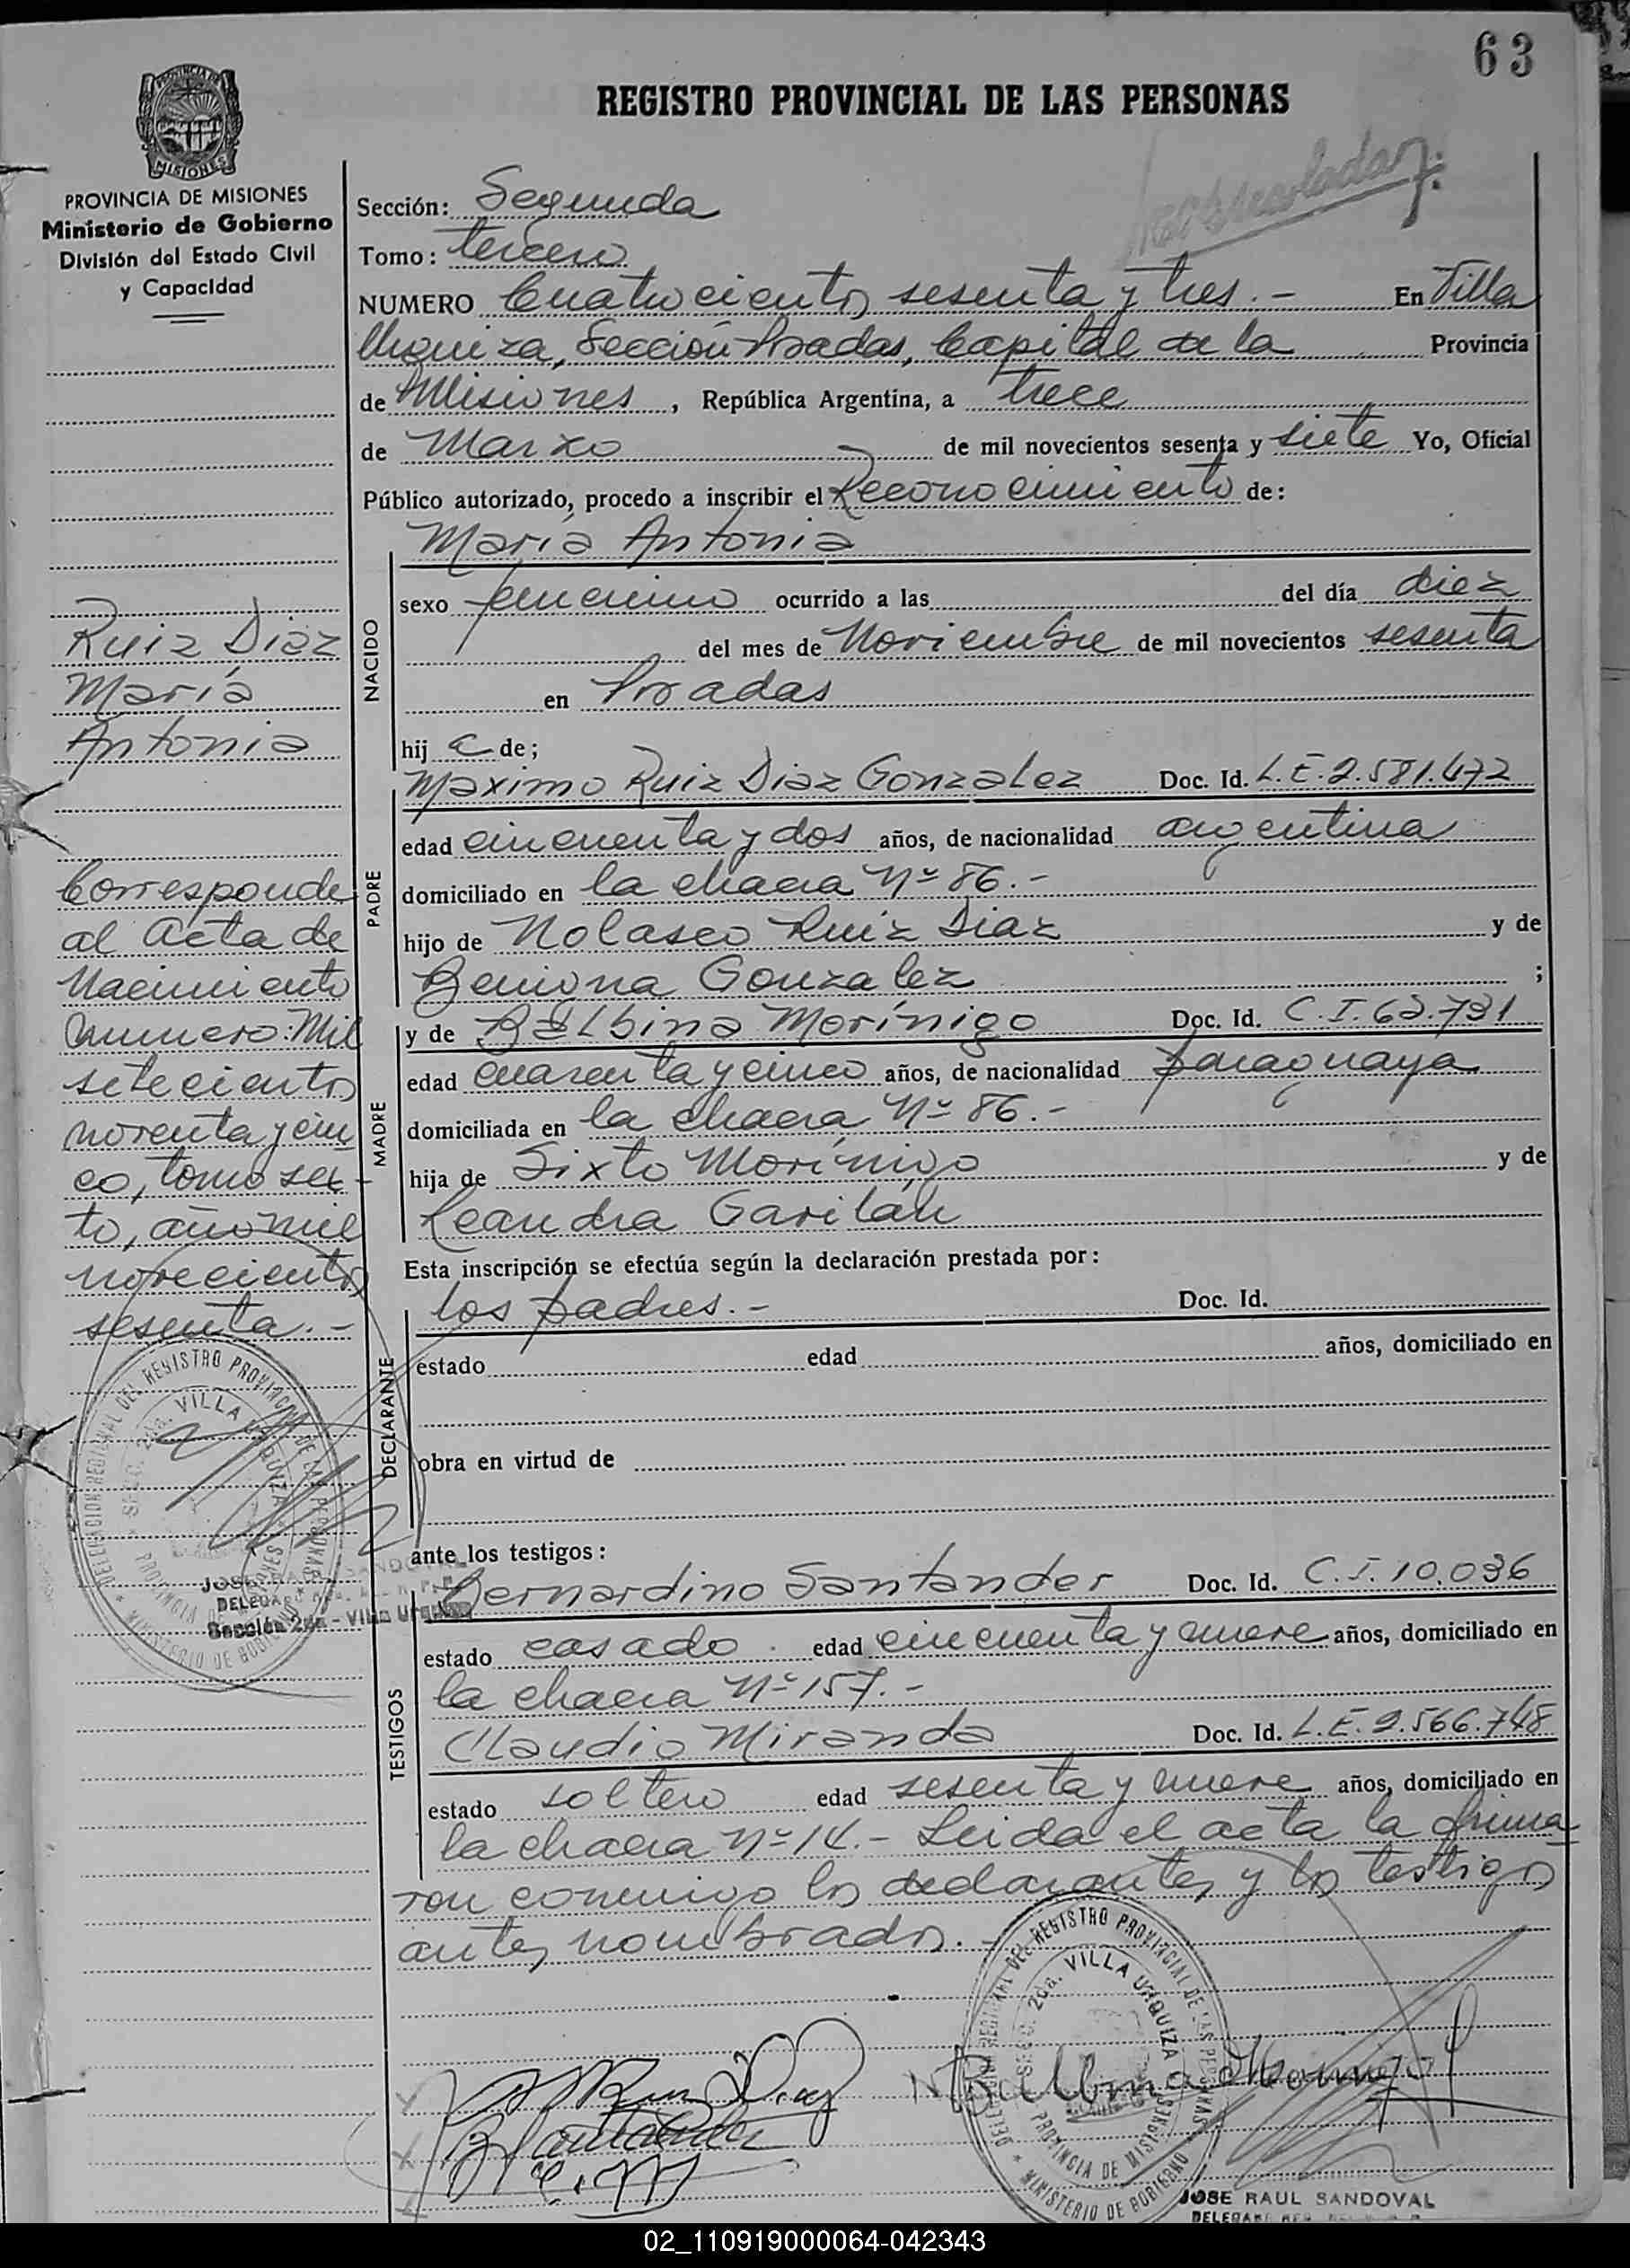 63
REGISTRO PROVINCIAL DE LAS PERSONAS
MISIONES
PROVINCIA DE MISIONES
Ministerio de Gobierno
División del Estado Civil
y Capacidad
Sección: Segunda
Tomo: tercero
NUMERO Cuatrocientos sesenta y tres.- En Villa
Urquiza, Sección Posadas, Capital de la Provincia
de Misiones, República Argentina, a trece
de Marzo de mil novecientos sesenta y siete Yo, Oficial
Público autorizado, procedo a inscribir el Reconocimiento de:
María Antonia
NACIDO
sexo femenino ocurrido a las del día diez
del mes de Noviembre de mil novecientos sesenta
en Posadas
hij a de;
Ruiz Diaz
María
Antonia
PADRE
Maximo Ruiz Diaz Gonzalez Doc. Id. L.E.2.581.472
edad cincuenta y dos años, de nacionalidad argentina
domiciliado en la chacra Nº 86.-
hijo de Nolasco Ruiz Diaz y de
Beniona Gonzalez ;
MADRE
y de Balbina Morínigo Doc. Id. C.I.62.731
edad cuarenta y cinco años, de nacionalidad paraguaya
domiciliada en la chacra Nº 86.-
hija de Sixto Morínigo y de
Leandra Gavilán
Corresponde
al Acta de
Nacimiento
número: Mil
setecientos
noventa y cin
co, tomo sex-
to, año mil
novecientos
sesenta.-
Esta inscripción se efectúa según la declaración prestada por:
DECLARANTE
los padres.- Doc. Id.
estado edad años, domiciliado en
obra en virtud de
ante los testigos:
TESTIGOS
Bernardino Santander Doc. Id. C.I.10.036
estado casado edad cincuenta y nueve años, domiciliado en
la chacra Nº 157.-
Claudio Miranda Doc. Id. L.E.2.566.748
estado soltero edad sesenta y nueve años, domiciliado en
la chacra Nº 14.- Leida el acta la firma
ron conmigo los declarantes y los testigos
antes nombrados.-
DELEGACION REGIONAL DEL REGISTRO PROVINCIAL DE LAS PERSONAS
SECC. 2da. VILLA URQUIZA
PROVINCIA DE MISIONES
MINISTERIO DE GOBIERNO
Sección 2da - Villa Urquiza
M Ruiz Diaz
Balbina Morinigo
B Santander
C. M
DELEGACION REGIONAL DEL REGISTRO PROVINCIAL DE LAS PERSONAS
SECC. 2da. VILLA URQUIZA
PROVINCIA DE MISIONES
MINISTERIO DE GOBIERNO
JOSE RAUL SANDOVAL
02_110919000064-042343